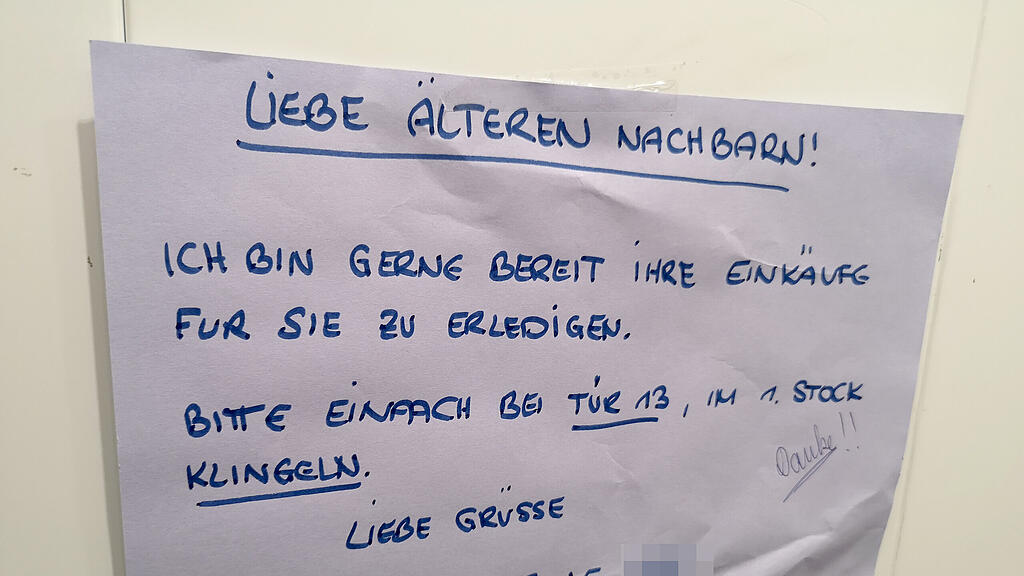 LIEBE ÄLTEREN NACHBARN!
ICH BIN GERNE BEREIT IHRE EINKÄUFE
FUR SIE ZU ERLEDIGEN.
BITTE EINFACH BEI TÜR 13, IM 1. STOCK
KLINGELN.
Danke!!
LIEBE GRÜSSE